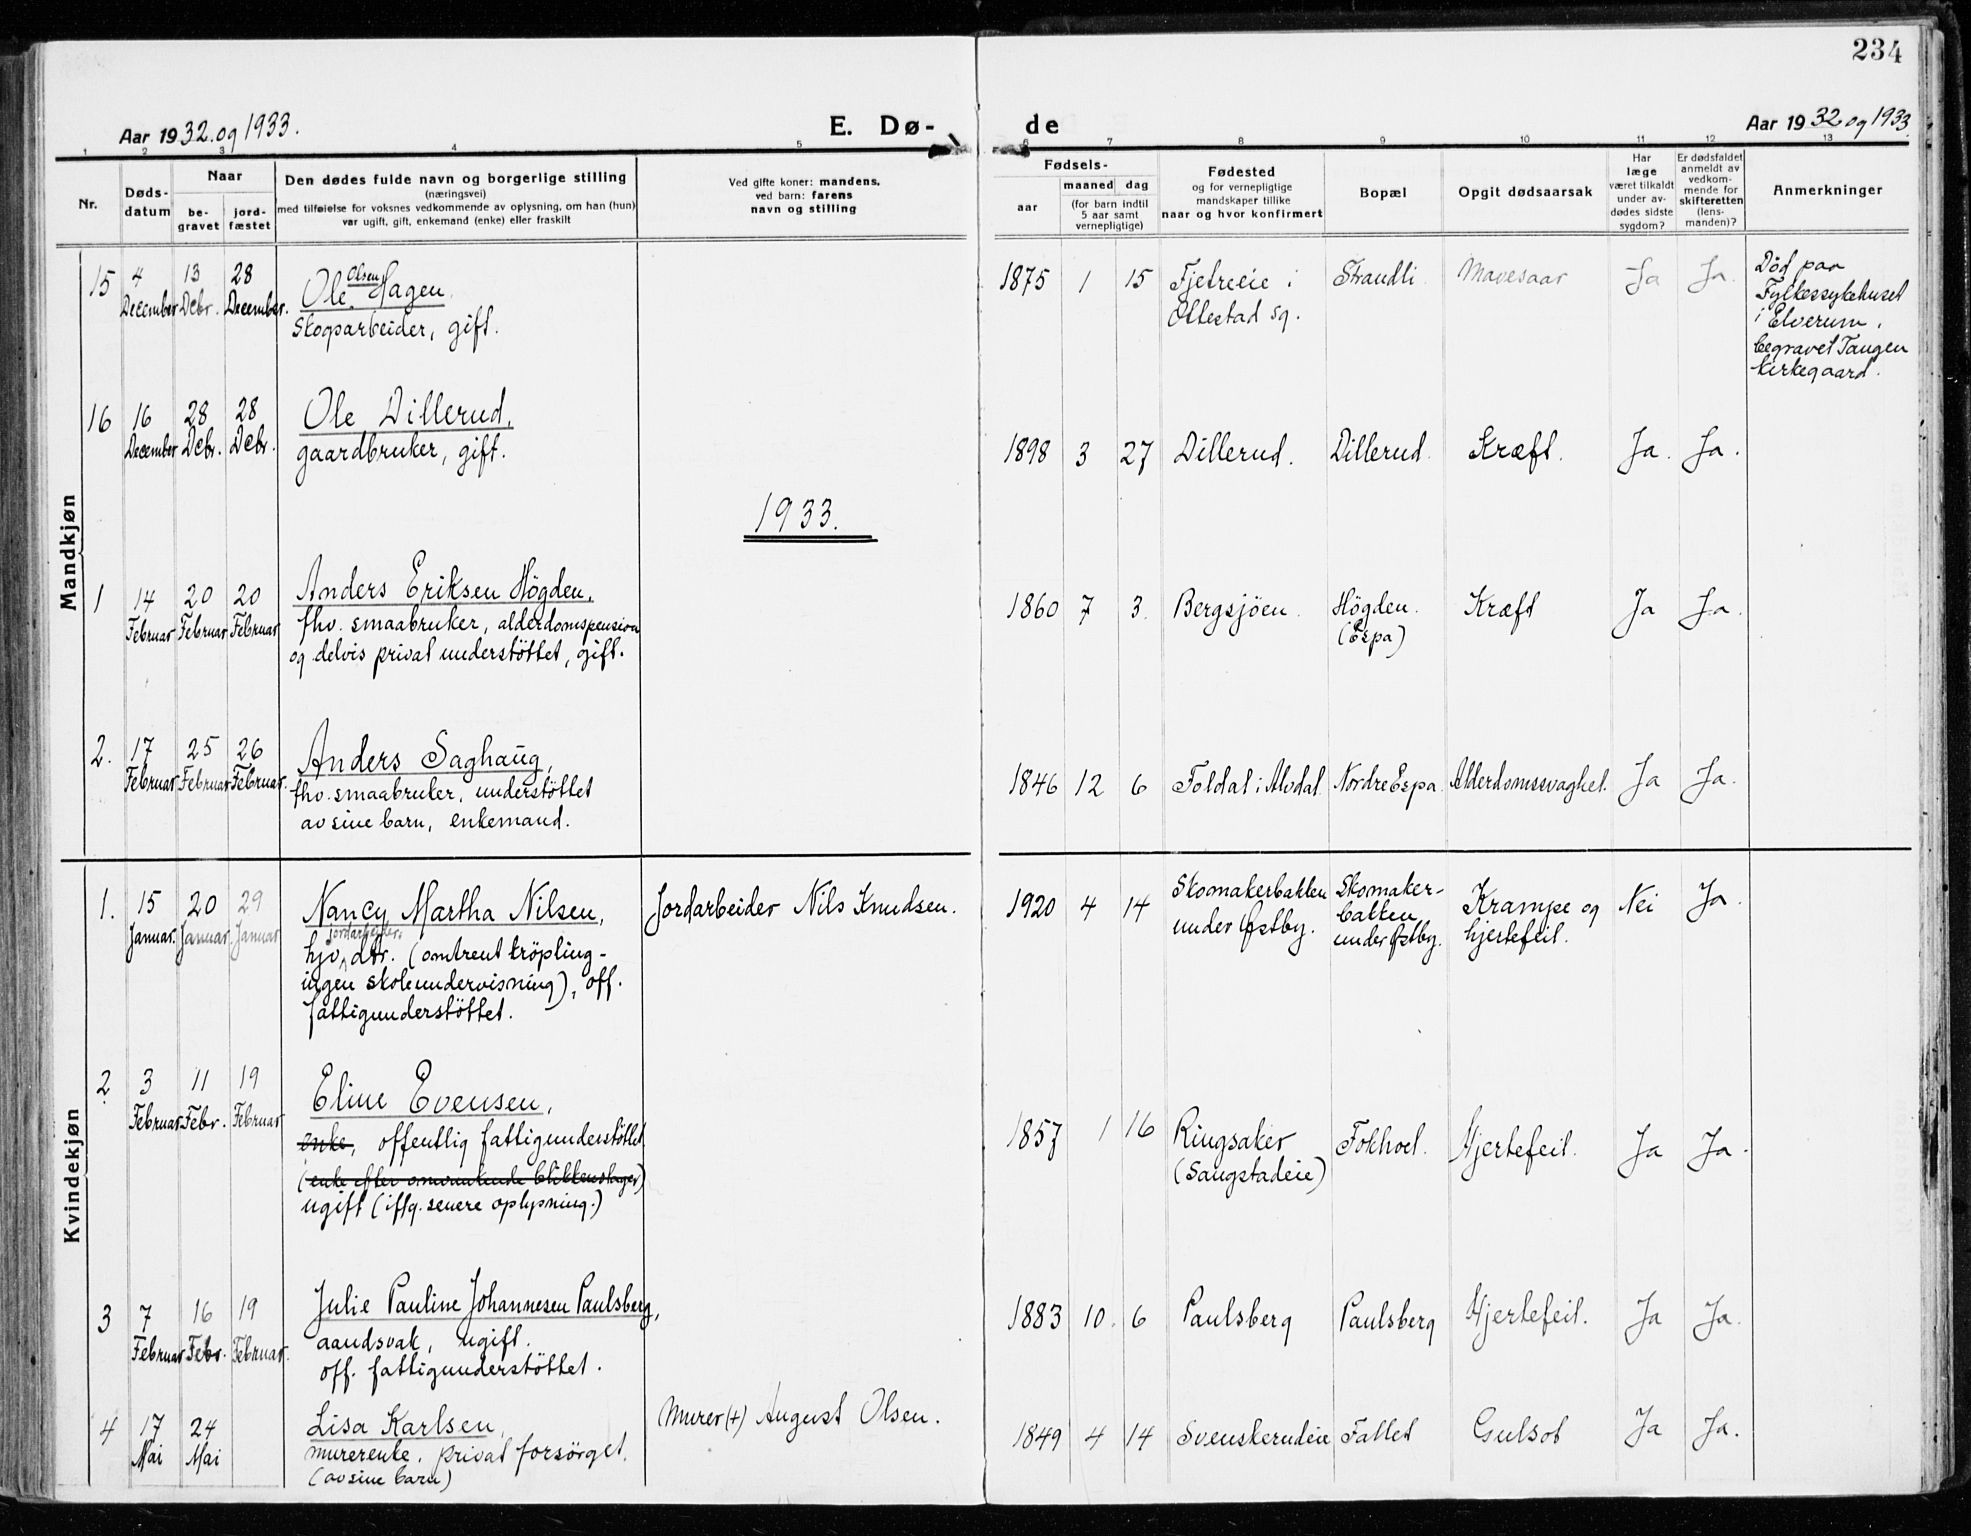 234
Aar 1932 og 1933.
E. Dø-
de
Aar 1932 og 1933.
1 2 3 4 5 6 7 8 9 10 11 12 13
Nr.
Døds-
datum
Naar
be-
gravet
jord-
fæstet
Den dødes fulde navn og borgerlige stilling
(næringsvei)
med tilføielse for voksnes vedkommende av oplysning, om han (hun)
var ugift, gift, enkemand (enke) eller fraskilt
Ved gifte koner: mandens,
ved barn: farens
navn og stilling
Fødsels-
aar
maaned dag
(for barn indtil
5 aar samt
vernepligtige)
Fødested
og for vernepligtige
mandskaper tillike
naar og hvor konfirmert
Bopæl
Opgit dødsaarsak
Har
læge
været tilkaldt
under av-
dødes sidste
sygdom?
Er dødsfaldet
anmeldt av
vedkom-
mende for
skifteretten
(lens-
manden)?
Anmerkninger
Mandkjøn
15 4 December 13 Decbr. 28 December.
Ole Olsen Hagen.
Skogsarbeider, gift.
1875 1 15
Fjetreeie i
Ottestad sg.
Strandli
Mavesaar
Ja Ja.
Død paa
Fylkessykehuset
i Elverum,
begravet Tangen
kirkegaard.
16 16 December 28 Decbr. 28 Decbr.
Ole Dillerud,
gaardbruker, gift.
1898 3 27 Dillerud. Dillerud. Kræft. Ja. Ja.
1933.
1 14 Februar 20 Februar 20 Februar
Anders Eriksen Högden,
fhv. smaabruker, alderdomspension
og delvis privat understöttet, gift.
1860 7 3. Bergsjöen. Högden.
(Espa)
Kræft Ja Ja.
2. 17 Februar. 25 Februar 26 Februar.
Anders Saghaug,
fhv. smaabruker, understöttet
av sine barn, enkemand.
1846 12 6 Foldal i Alvdal. Nordre Espa. Alderdomssvaghet. Ja Ja.
Kvindekjøn
1. 15 Januar. 20 Januar. 29 Januar
Nancy Martha Nilsen,
jordarbeider.
hjv. dtr. (omtrent tröpling-
ingen skoleundervisning), off.
fattigunderstöttet.
Jordarbeider Nils Knudsen.
1920 4 14
Skomakerbakken
under Østby.
Skomaker-
bakken
under Østby.
Krampe og
hjertefeil.
Nei Ja.
2. 3 Februar 11 Febr. 19 Februar
Eline Evensen,
enke, offentlig fattigunderstöttet
(enke efter omvankende blikkenslager)
ugift (iflg. senere oplysning.)
1857 1 16
Ringsaker
(Saugstadeie)
Fokhol. Hjertefeil. Ja Ja.
3 7 Februar 16 Febr. 19 Februar.
Julie Pauline Johannesen Paulsberg,
aandsvak, ugift.
off. fattigunderstöttet.
1883 10. 6 Paulsberg Paulsberg Hjertefeil. Ja Ja.
4 17 Mai 24 Mai
Lisa Karlsen,
murerenke. privat forsörget.
(av sine barn)
Murer (+) August Olsen.
1849 4 14 Svenskerudeie Fallet Gulsot Ja Ja.